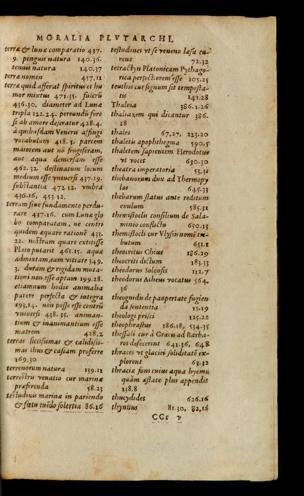 MORALIA PLVTARCHI.
terræ & lunæ comparatio 437.
9. pinguis natura 140.36.
tenuis natura 140.37
terræ nomen 457.11
terra quid afferat spiritus et hu
mor mixtus 471.35. sideris
436.30. diameter ad Luna
tripla 122.24. pereundi fore
si ab amore deseratur 428.4.
à quibusdam Veneru assingi
vocabulum 428.3. partem
maiorem aut nō frugiferam,
aut aqua demersam esse
462.32. destinatum locum
medium esse vniuersi 457.19.
substantia 472.12. vmbra
436.16, 453.12.
terram sine fundamento perdu-
rare 437.26. cum Luna glo
bo comparatam, ne centri
quidem æquare rationē 433.
22. nostram quare extitisse
Plato putarit 461.15. aqua
admixtam, aut vitiare 349.
3. duram & rigidam muta-
tioni non esse aptam 199.28.
etiamnum hodie animalia
parere perfecta & integra
193.14. non posse esse centrū
vniuersi 438.35. animan-
tium & inanimantium esse
matrem 428.2
terras siccissimas & calidissi-
mas thus & casiam proferre
169.30
terrenorum natura 139.11
terrestris venatio cur marinæ
præferenda 58.23
testudinis marinæ in pariendo
& fœtu tuēdo solertia 86.16
testudines vt se veneno læsæ cu-
rent 72.32
tetractyn Platonicam Pythago-
rica perfectiorem esse 105.25
teuthis cur signum sit tempesta-
tis 141.28
Thalæa 386.1.26
thaliaxem qui dicantur 386.
28
thales 67.27, 223.20
thaletis apophthegma 590.5
thaletem sapientem Herodotus
vt vocet 650.30
theatra imperatoria 53.31
thebanorum dux ad Thermopy
las 645.33
thebarum status ante reditum
exulum 585.31
themistoclis consilium de Sala-
minio conflictu 650.13
themistocli cur Vlyssis nomē tri-
butum 651.1
theocritus Chius 186.29
theocriti dictum 183.33
theodorus Solensis 112.7
theodorus Atheus vocatus 564.
36
theognidis de paupertate fugien
da sententia 15.19
theologi prisci 125.22
theophrastus 186.18, 534.35
thessali cur à Græcis ad Barba-
ros desecerint 641.36, 648
thraces vt glaciei soliditatē ex-
plorent 63.32
thracia sues cuius aqua hyeme
quàm æstate plus appendit
138.8
thucydides 626.16
thynnus 81.30, 82,18
CCc v